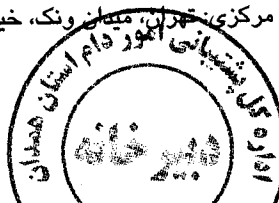 مرکزی: تهران، میدان ونک، خی
اداره کل پشتیبانی امور دام استان همدان
دبیرخانه